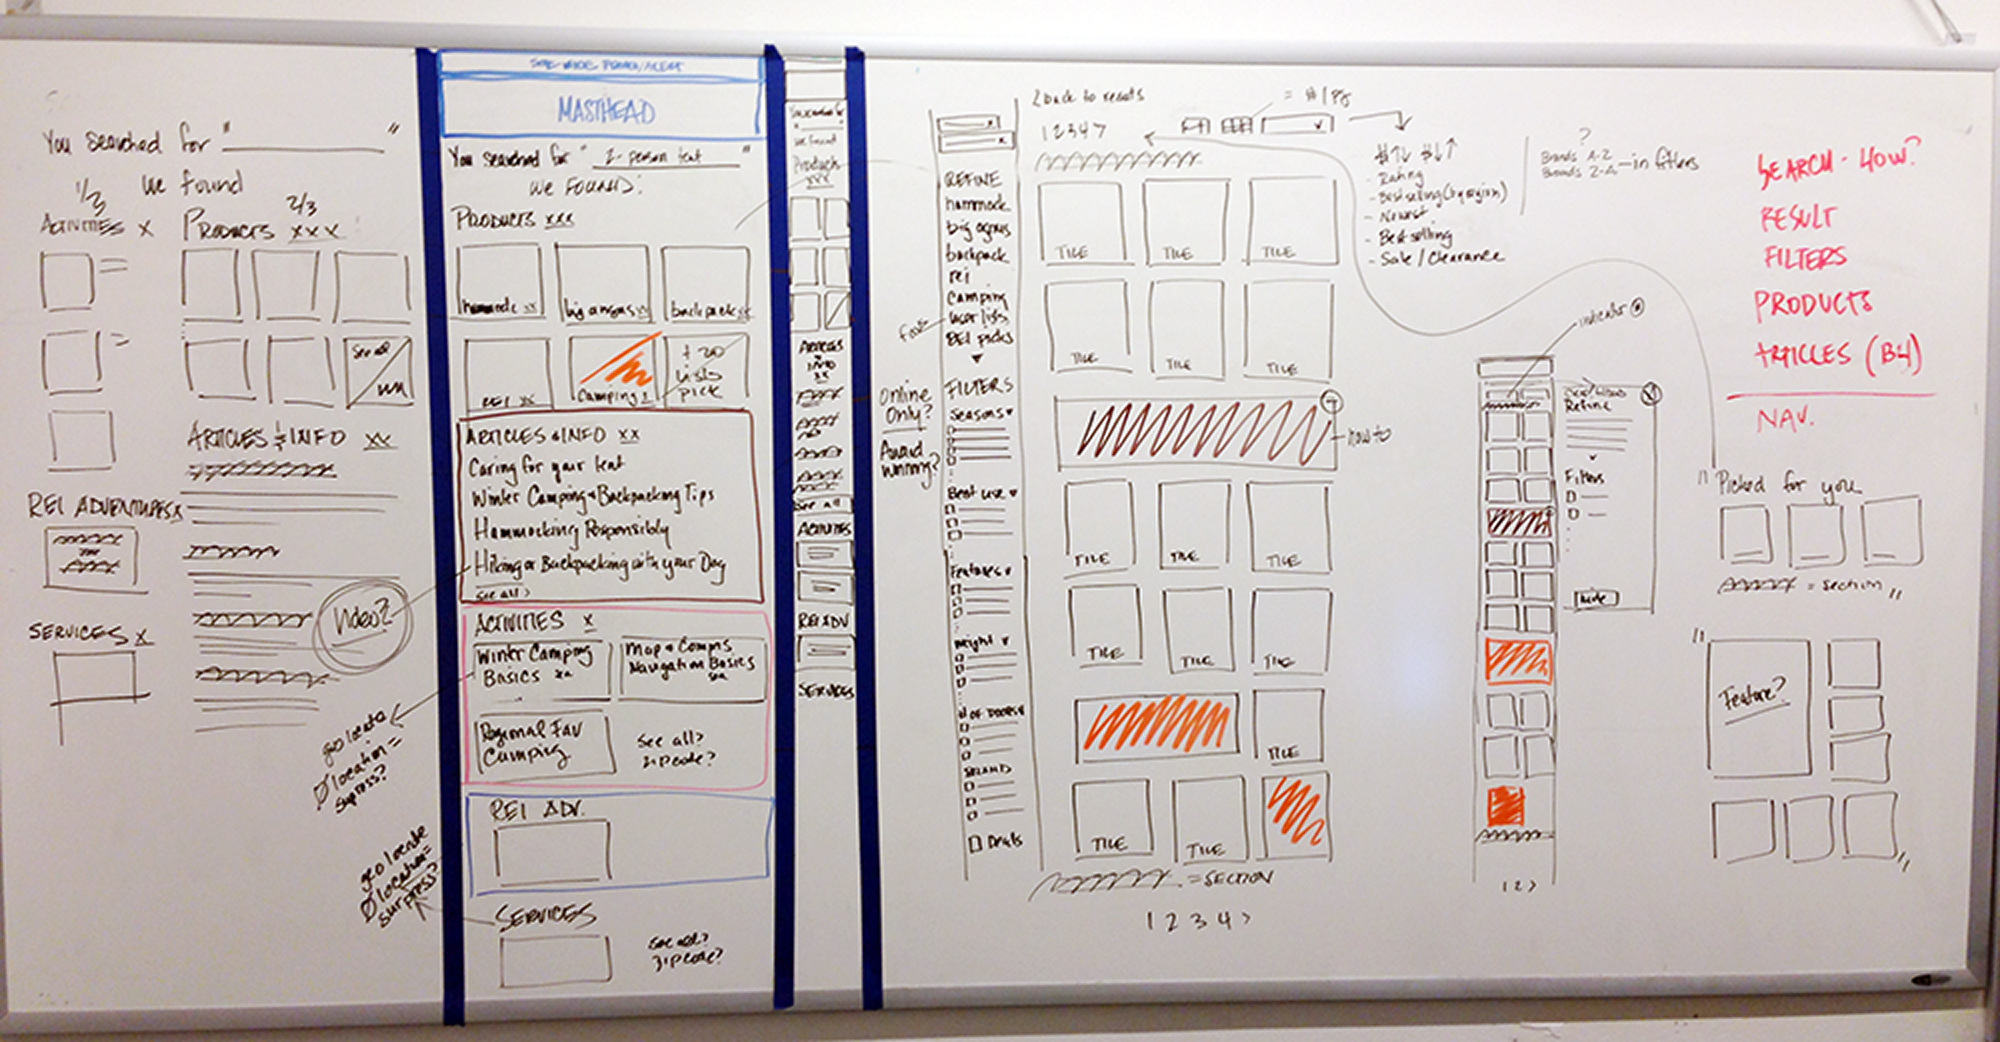 You searched for "            "
1/3 We found
ACTIVITIES X
PRODUCTS XXX
2/3
See all
ARTICLES & INFO XX
REI ADVENTURES X
SERVICES X
Video?
geo locate
Ø location =
supress?
geo locate
Ø location =
surpress?
SITE-WIDE PROMO/ALERT
MASTHEAD
You searched for " 2-person tent "
WE FOUND:
PRODUCTS XXX
hammock XX
big agnes XX
backpack XX
REI XX
Camping X
ARTICLES & INFO XX
Caring for your tent
Winter Camping & Backpacking Tips
Hammocking Responsibly
Hiking or Backpacking with your Dog
See all >
ACTIVITIES X
Winter Camping
Basics XX
Navigation Basics
Regional Fav
Camping
See all?
Zip code?
REI ADV.
SERVICES
See all?
Zip code?
We found
Products
XXX
ARTICLES
& INFO
XX
See all
ACTIVITIES
REI ADV
SERVICES
< back to results
1 2 3 4 >
= # / Pg
REFINE
hammock
big agnes
backpack
rei
Camping
user lists
REI picks
FILTERS
Seasons
Best use
Features
Weight
# OF DOORS
BRAND
Deals
Online
Only?
Award
Winning?
TILE
TILE
TILE
TILE
TILE
TILE
how to
TILE
TILE
TILE
TILE
TILE
TILE
TILE
TILE
TILE
= SECTION
1 2 3 4 >
$↑↓ $↓↑
- Rating
- Best selling (by region)
- Newest
- Best selling
- Sale / Clearance
?
Brands A-Z
Brands Z-A
— in filters
indicator
Refine
Filters
hide
1 2 >
SEARCH - HOW?
RESULT
FILTERS
PRODUCTS
ARTICLES (B4)
NAV.
" Picked for you
= section "
" Feature?
"